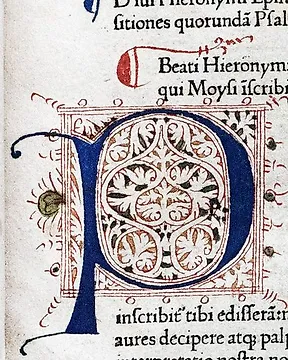 Diui Hieronymi Epi
sitiones quorundã Psal
Beati Hieronymi
qui Moysi iscribi
P
inscribit̃ tibi edisserã:n
aures decipere atq; palp